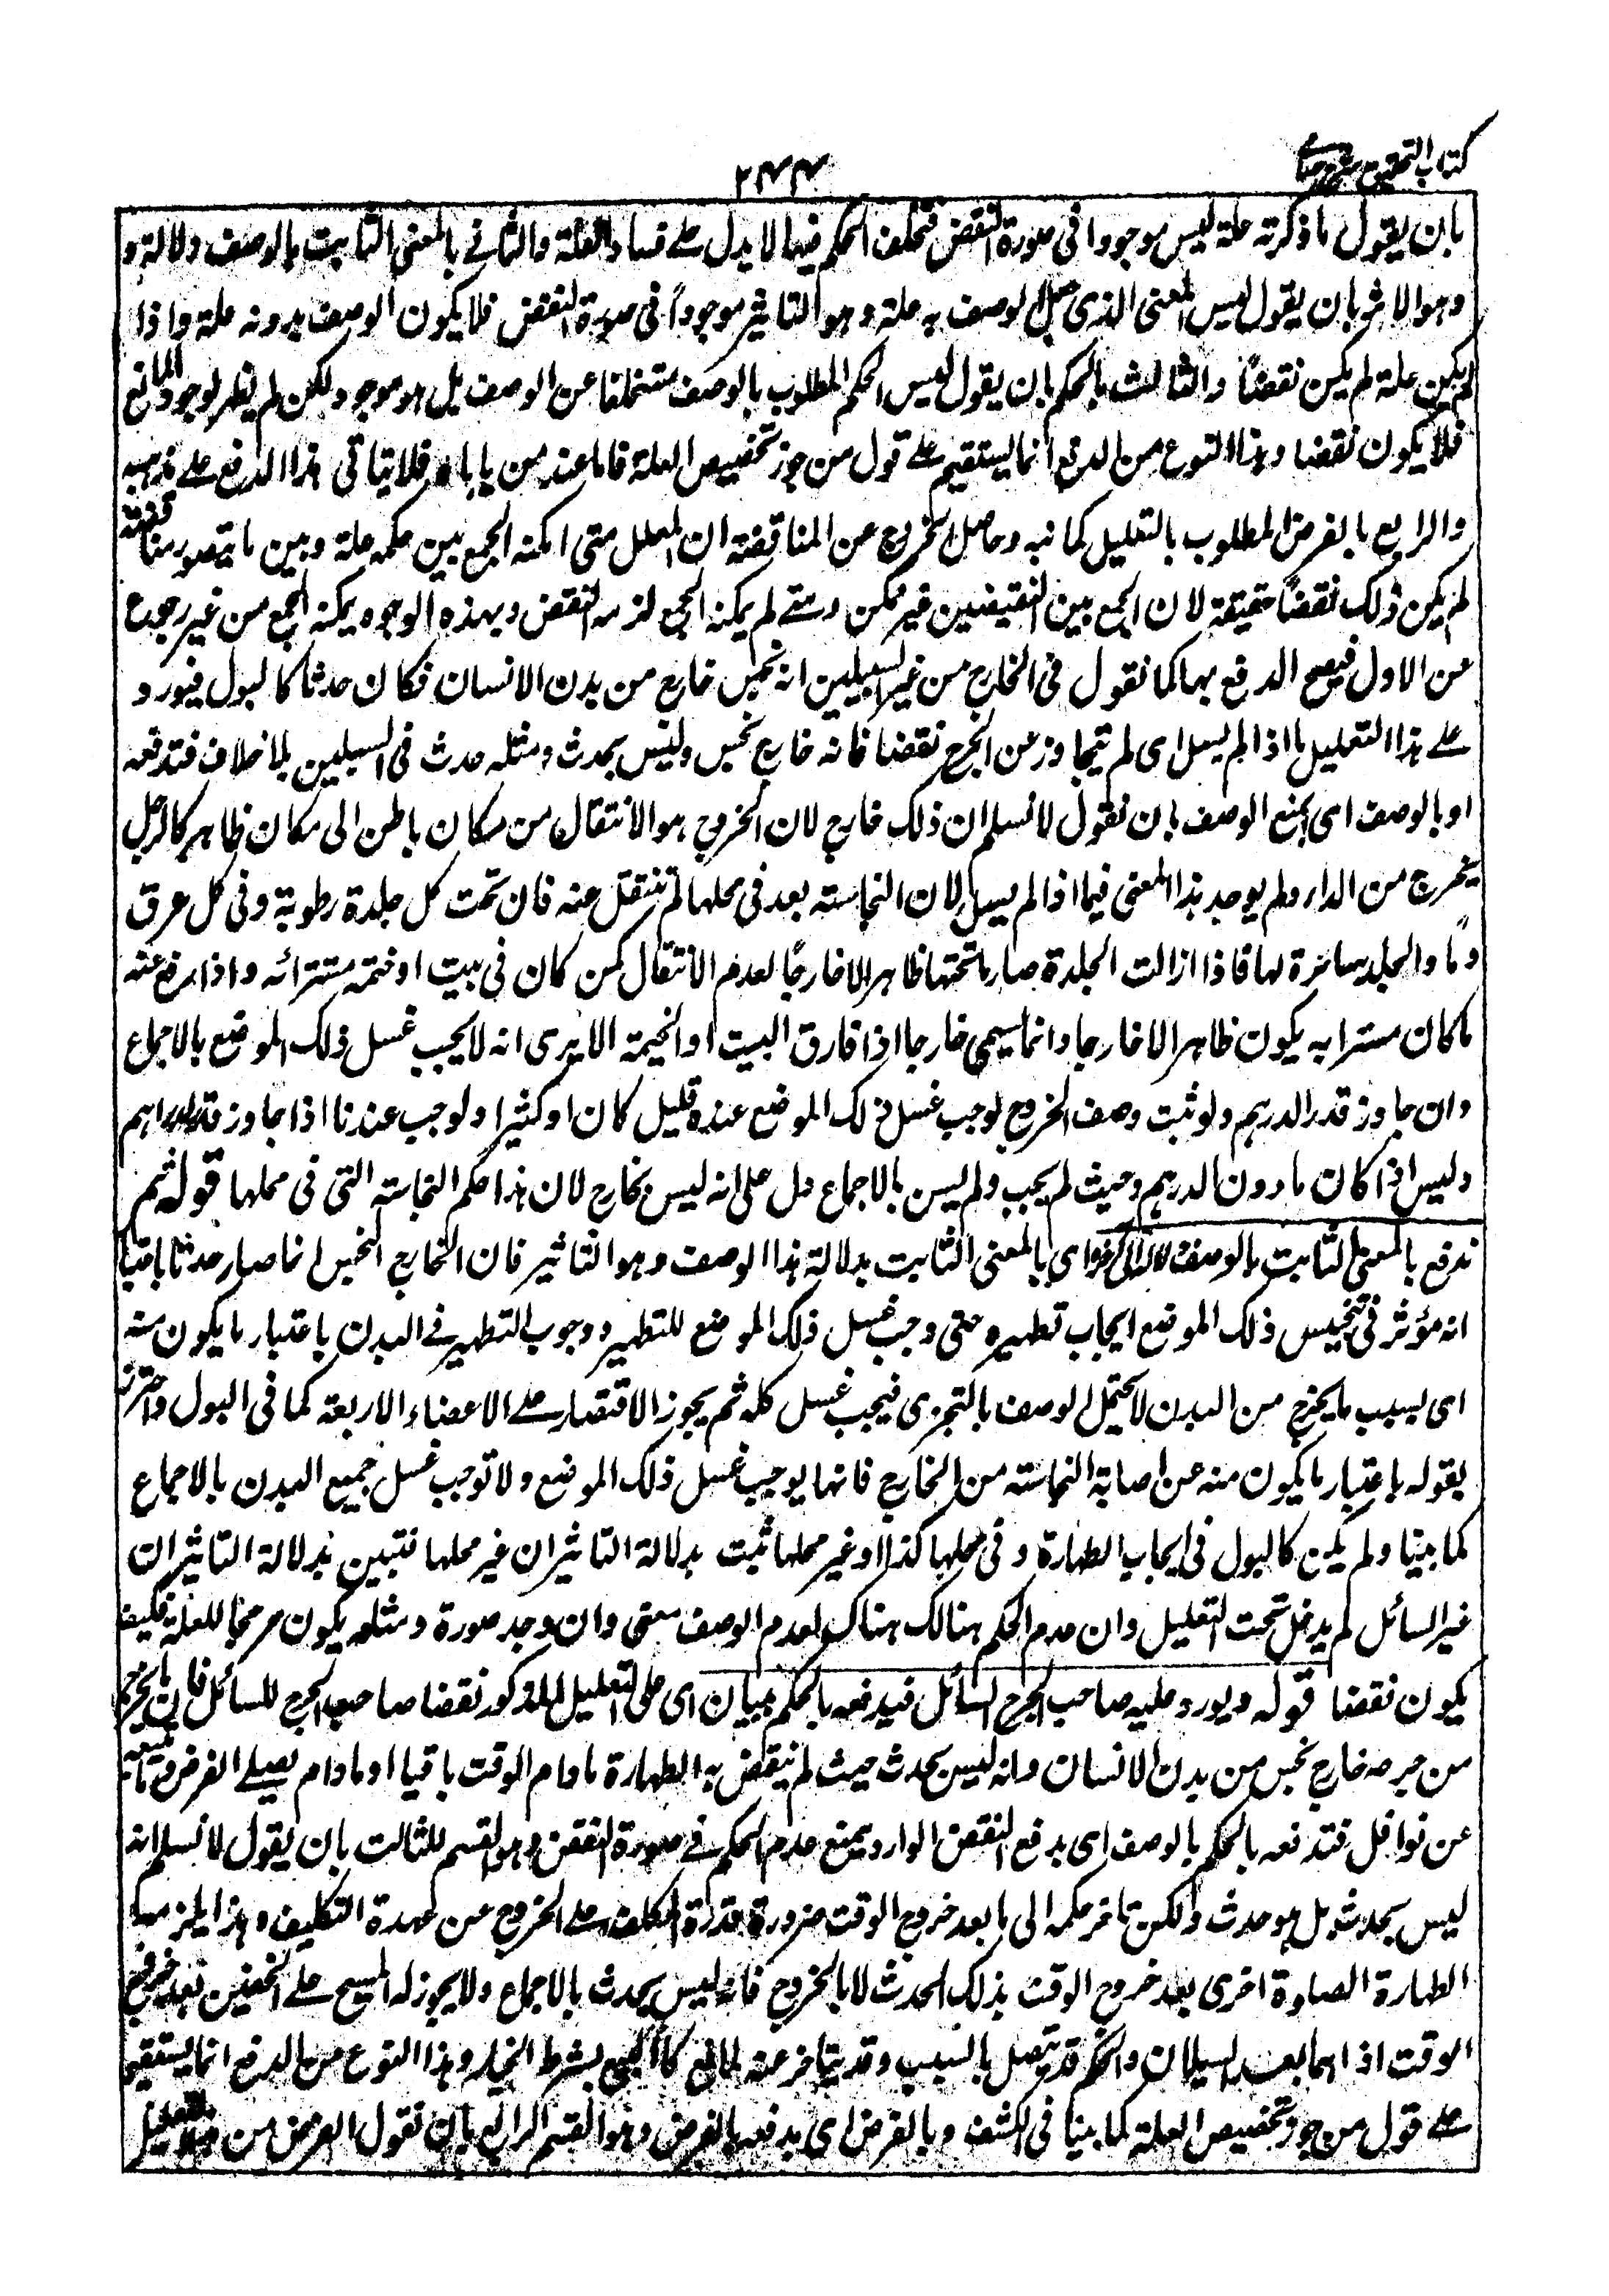 كتاب التحقيق شرح حسامى
٢٤٤
بان يقول ما ذكرته علة ليس موجودا فى صورة النقض فتخلف الحكم فيها لا يدل على فساد العلة والثانى بالمعنى الثابت بالوصف دلالة و
وهو الاثر بان يقول ليس المعنى الذى جعل الوصف به علة وهو التاثير موجوداً فى صورة النقض فلا يكون الوصف بدونه علة واذا
لم يكن علة لم يكن نقضاً والثالث بالحكم بان يقول ليس الحكم المطلوب بالوصف متخلفا عن الوصف بل هو موجود ولكن لم يظهر لوجود المانع
فلا يكون نقضا وهذا النوع من الدفع انما يستقيم على قول من جوز تخصيص العلة فاما عند من ياباه فلا يتاتى هذا الدفع على مذهبه
والرابع بالغرض المطلوب بالتعليل كما نبه وحاصل الخروج عن المناقضة ان المعلل متى امكنه الجمع بين حكمه علة وبين ما يتصور مناقضة
لم يكن ذلك نقضاً حقيقة لان الجمع بين النقيضين غير ممكن ومتى لم يمكنه الجمع لزمه النقض وبهذه الوجوه يمكنه الجمع من غير رجوع
عن الاول فيصح الدفع بها كما نقول فى الخارج من غير السبيلين انه نجس خارج من بدن الانسان فكان حدثا كالبول فيورد
على هذا التعليل ما اذا لم يسل اى لم يتجاوز عن الجرح نقضا فانه خارج نجس وليس بحدث ومثله حدث فى السبيلين بلا خلاف فتدفعه
او بالوصف اى بمنع الوصف بان نقول لا نسلم ان ذلك خارج لان الخروج هو الانتقال من مكان باطن الى مكان ظاهر كالرجل
يخرج من الدار ولم يوجد هذا المعنى فيما اذا لم يسل لان النجاسة بعد فى محلها لم تنتقل عنه فان تحت كل جلدة رطوبة وفى كل عرق
دما والجلد ساترة لها فاذا ازالت الجلدة صار ما تحتها ظاهرا لا خارجا لعدم الانتقال كمن كان فى بيت او خيمة مستترا به واذا رفع عنه
ما كان مستترا به يكون ظاهرا لا خارجا وانما يسمى خارجا اذا فارق البيت او الخيمة الا يرى انه لا يجب غسل ذلك الموضع بالاجماع
وان جاوز قدر الدرهم ولو ثبت وصف الخروج لوجب غسل ذلك الموضع عنده قليل كان او كثيرا ولوجب عندنا اذا جاوز قدر الدراهم
وليس اذا كان ما دون الدرهم وحيث لم يجب ولم يسن بالاجماع دل على انه ليس بخارج لان هذا حكم النجاسة التى فى محلها قوله ثم
ندفع بالمعنى الثابت بالوصف دلالة اى بالمعنى الثابت بدلالة هذا الوصف وهو التاثير فان الخارج النجس انما صار حدثا باعتبار
انه مؤثر فى تنجيس ذلك الموضع ايجاب تطهيره حتى وجب غسل ذلك الموضع للتطهير ووجوب التطهير فى البدن باعتبار ما يكون منه
اى بسبب ما يخرج من البدن لا يحتمل الوصف بالتجزى فيجب غسل كله ثم يجوز الاقتصار على الاعضاء الاربعة كما فى البول واحترز
بقوله باعتبار ما يكون منه عن اصابة النجاسة من الخارج فانها يوجب غسل ذلك الموضع ولا توجب غسل جميع البدن بالاجماع
كما بينا ولم يكن كالبول فى ايجاب الطهارة وفى محلها كذا او غير محلها ثبت بدلالة التاثير ان غير محلها فتبين بدلالة التاثير ان
غير السائل لم يدخل تحت التعليل وان عدم الحكم هنالك هناك لعدم الوصف معنى وان وجد صورة ومثله يكون مرجحا للعلة فكيف
يكون نقضا قوله ويورد عليه صاحب الجرح السائل فيدفعه بالحكم ببيان اى على التعليل المذكور نقضا صاحب الجرح للسائل فان ما يخرج
من جرحه خارج نجس من بدن الانسان وانه ليس بحدث حيث لم ينتقض به الطهارة ما دام الوقت باقيا او ما دام يصلى الفرض وتابعه
عن نوافل فتدفعه بالحكم بالوصف اى بدفع النقض الوارد بمنع عدم الحكم فى صورة النقض وهو القسم الثالث بان يقول لا نسلم انه
ليس بحدث بل هو حدث ولكن تاخر حكمه الى ما بعد خروج الوقت ضرورة قدرة المكلف على الخروج عن عهدة التكليف ولهذا يلزمها
الطهارة الصلوة اخرى بعد خروج الوقت بذلك الحدث لا بالخروج فانه ليس بحدث بالاجماع ولا يجوز له المسح على الخفين بعد خروج
الوقت اذ لبسهما بعد السيلان والحكم قد يتصل بالسبب وقد يتاخر عنه لمانع كالبيع بشرط الخيار وهذا النوع من الدفع انما يستقيم
على قول من جوز تخصيص العلة كما بينا فى الكشف وبالغرض اى يدفعه بالغرض وهو القسم الرابع بان نقول الغرض من هذا التعليل